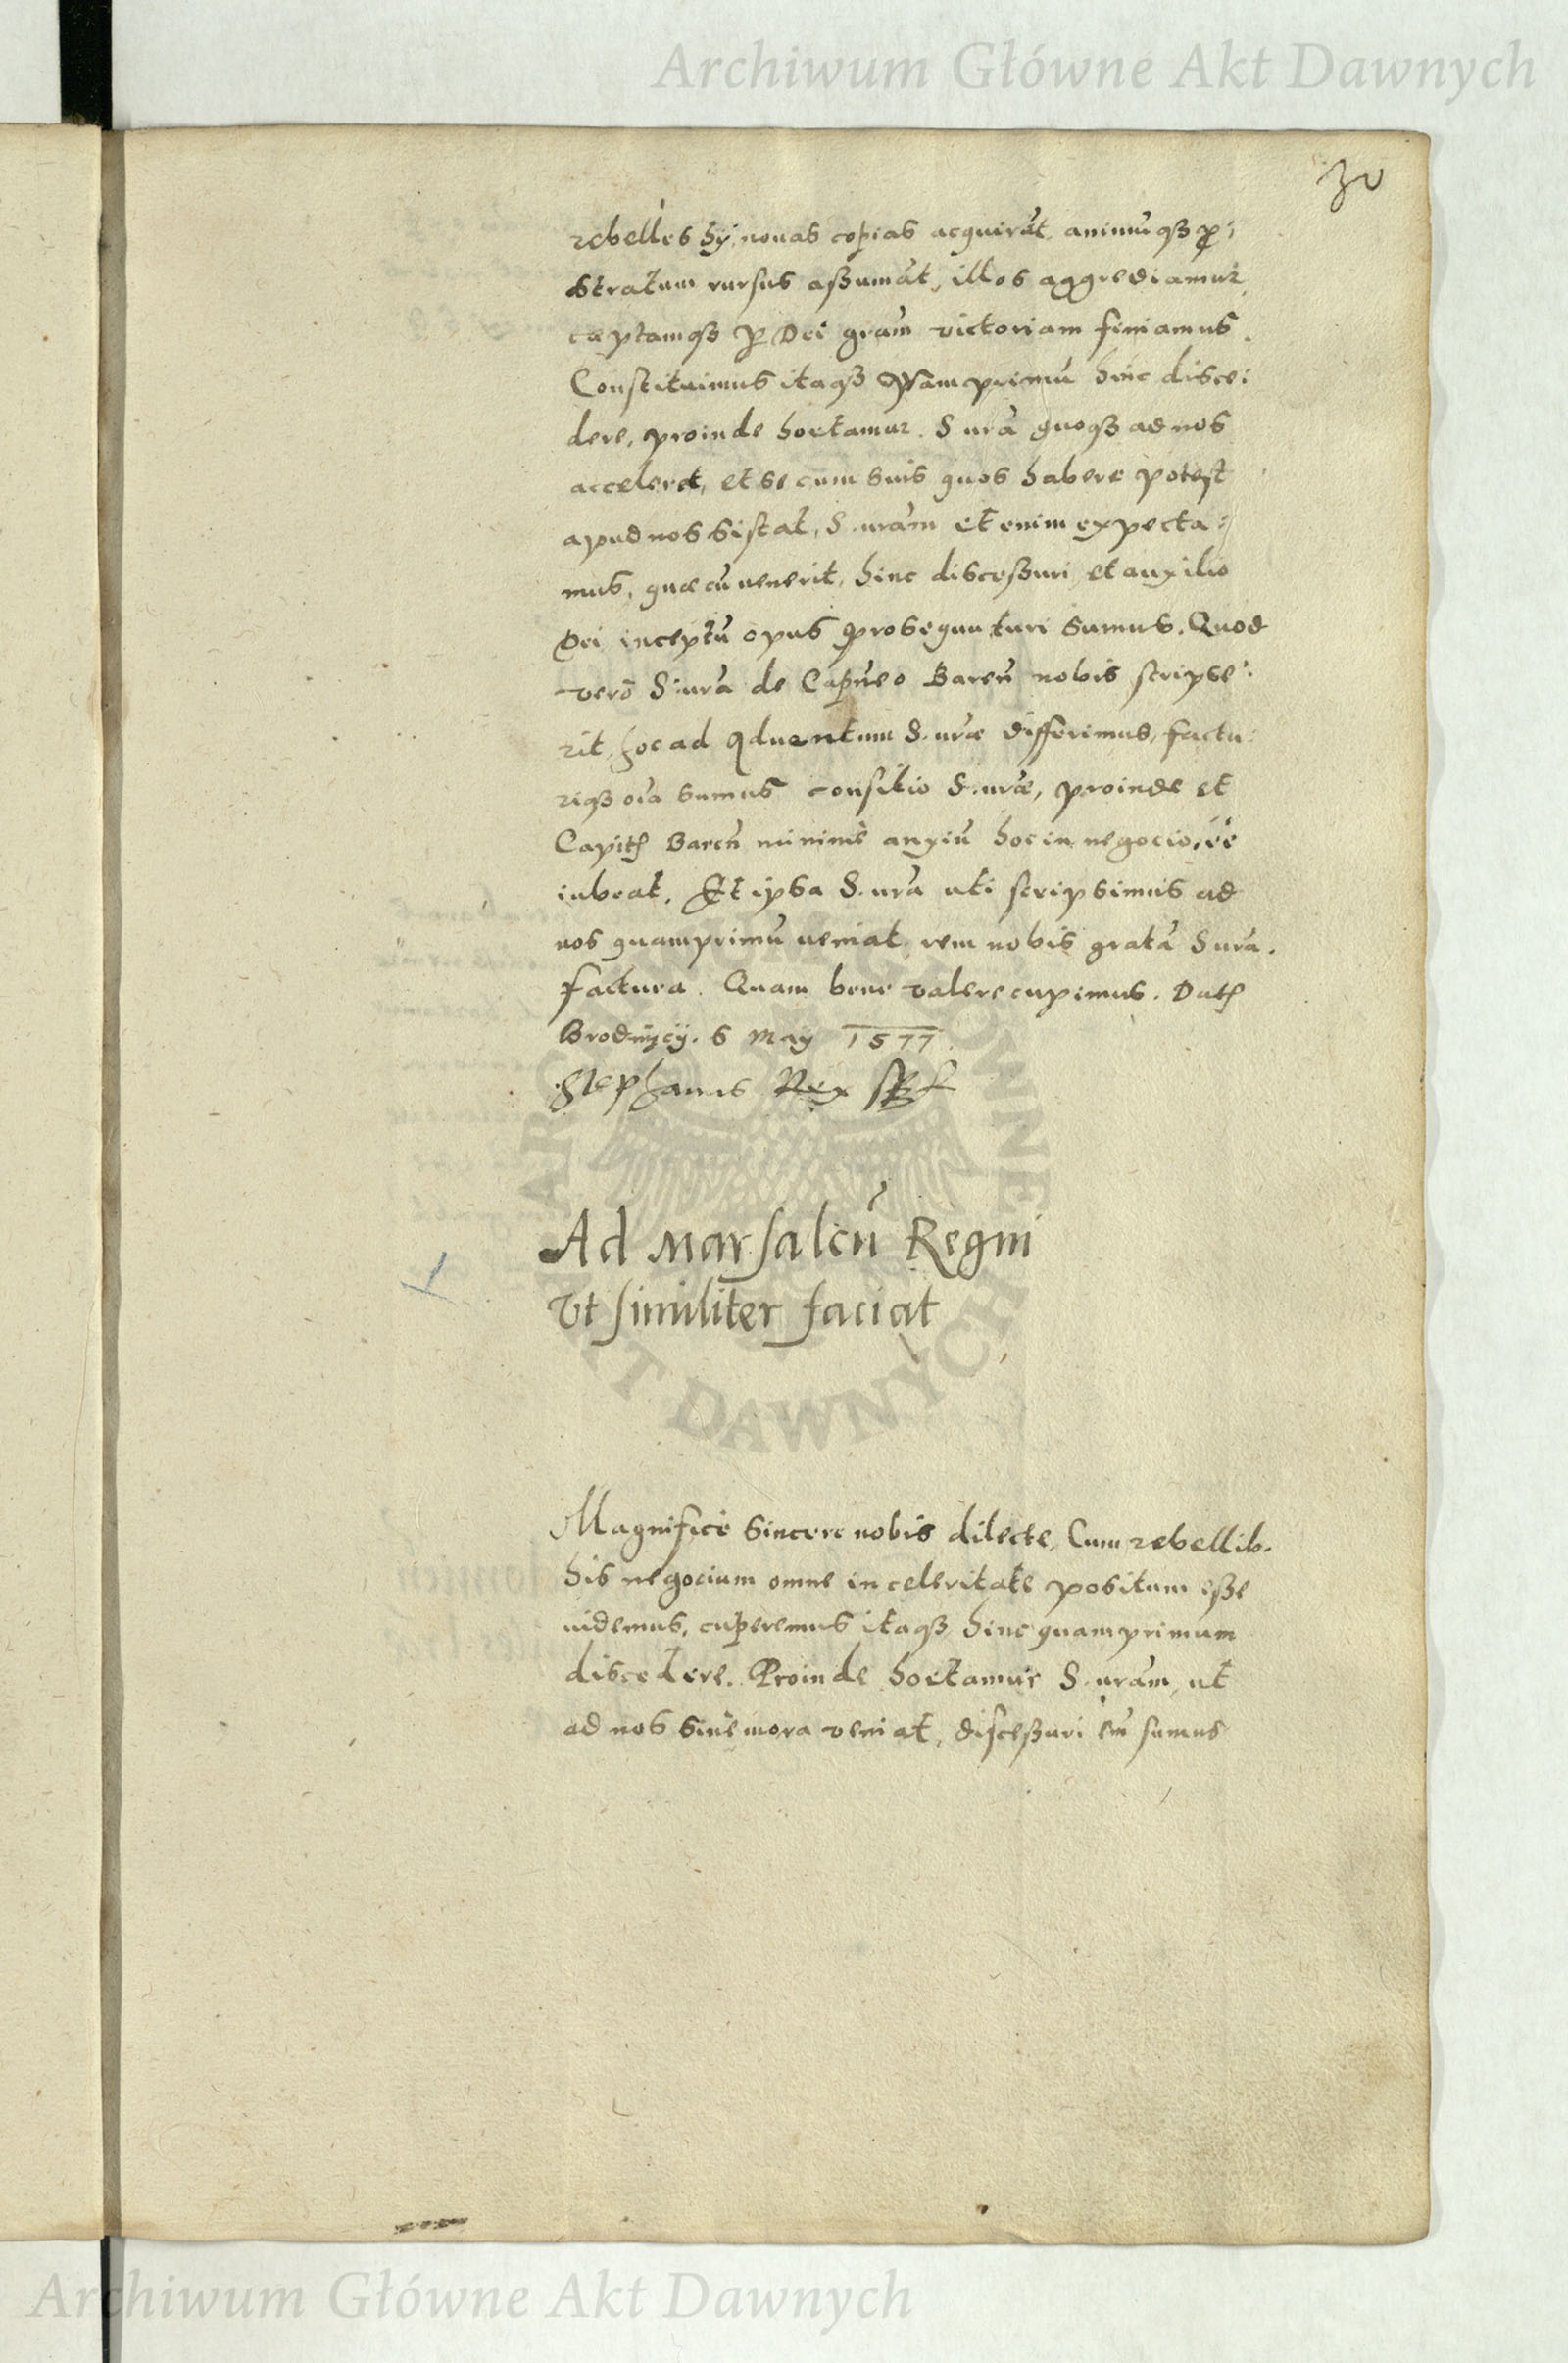 Archiwum Główne Akt Dawnych
30
rebelles hÿ, nouas copias acquirūt, animūqꝫ ꝓ:
stratum rursus aßumāt, illos aggrediamur,
cæptamqꝫ ꝑ Dei grām victoriam finiamus.
Constituimus itaqꝫ quamprimū hinc disce:
dere, proinde hortamur. S. urā quoqꝫ ad nos
acceleret, et se cum suis quos habere potest
apud nos sistat, S. urām etenim expecta:
mus, quæcū uenerit, hinc disceßuri, et auxilio
Dei inceptū opus prosequuturi sumus. Quod
verò S. urā de Capneo Baren̄ nobis scripse:
rit, hoc ad aduentum S. uræ differimus, factu:
riqꝫ oīa sumus consilio S. uræ, proinde et
Capit̄ Baren̄ minimè anxiū hoc in negocio, eē
iubeat. Et ipsa S. urā uti scripsimus ad
nos quamprimū ueniat, rem nobis gratā S urā.
factura. Quam bene valere cupimus. Dat̄
Brodnÿcÿ. 6 May 1577.
Stephanus Rex sst
Ad Marsalcū Regni
Vt similiter faciat
Magnifice sincere nobis dilecte, Cum rebellib.
his negocium omne in celeritate positum eße
uidemus, cuperemus itaqꝫ hinc quamprimum
discedere. Proinde hortamur S. urām, ut
ad nos sine mora veniat, disceßuri em̄ sumus
ARCHIWUM GŁÓWNE AKT DAWNYCH
Archiwum Główne Akt Dawnych